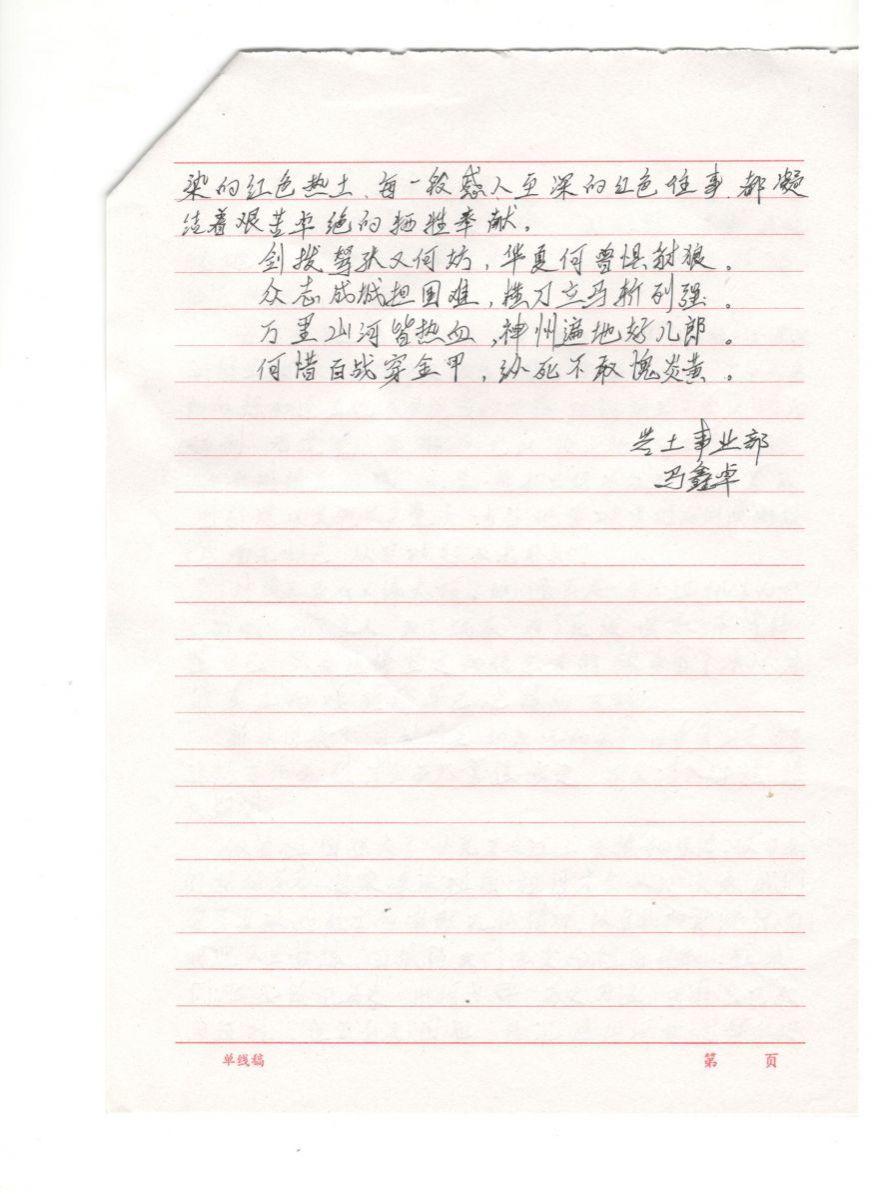 染的红色热土、每一段感人至深的红色往事.都凝
结着艰苦卓绝的牺牲奉献。
剑拔弩张又何妨，华夏何曾惧豺狼。
众志成城担国难，横刀立马斩列强。
万里山河皆热血，神州遍地好儿郎。
何惜百战穿金甲，纵死不敢愧炎黄。
岩土事业部
马鑫卓
单线稿 第 页